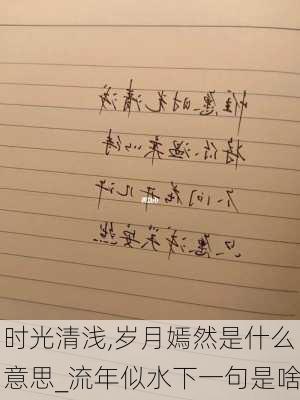 惟愿时光清浅
将你温柔以待
不问花开几许
只愿浅笑安然
时光清浅,岁月嫣然是什么
意思_流年似水下一句是啥